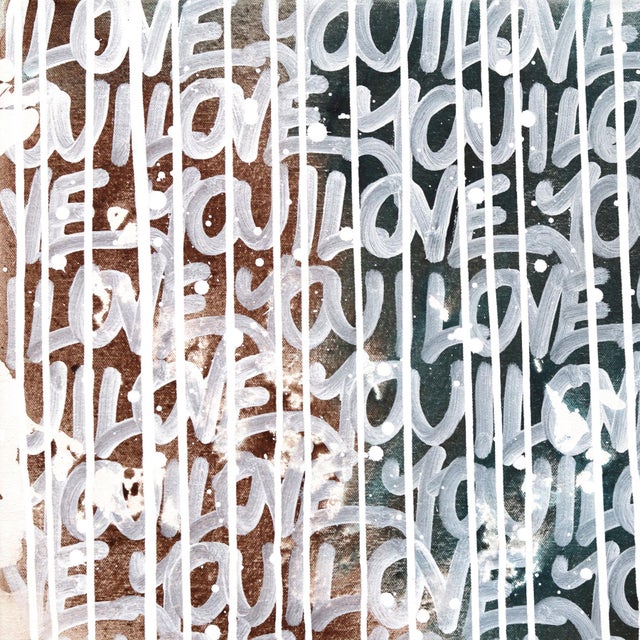 I LOVE YOU I LOVE
YOU I LOVE YOU I LO
VE YOU I LOVE YO
I LOVE YOU I LOVE
YOU I LOVE YOU I LO
YOU I LOVE YOU I
VE YOU I LOVE YOU